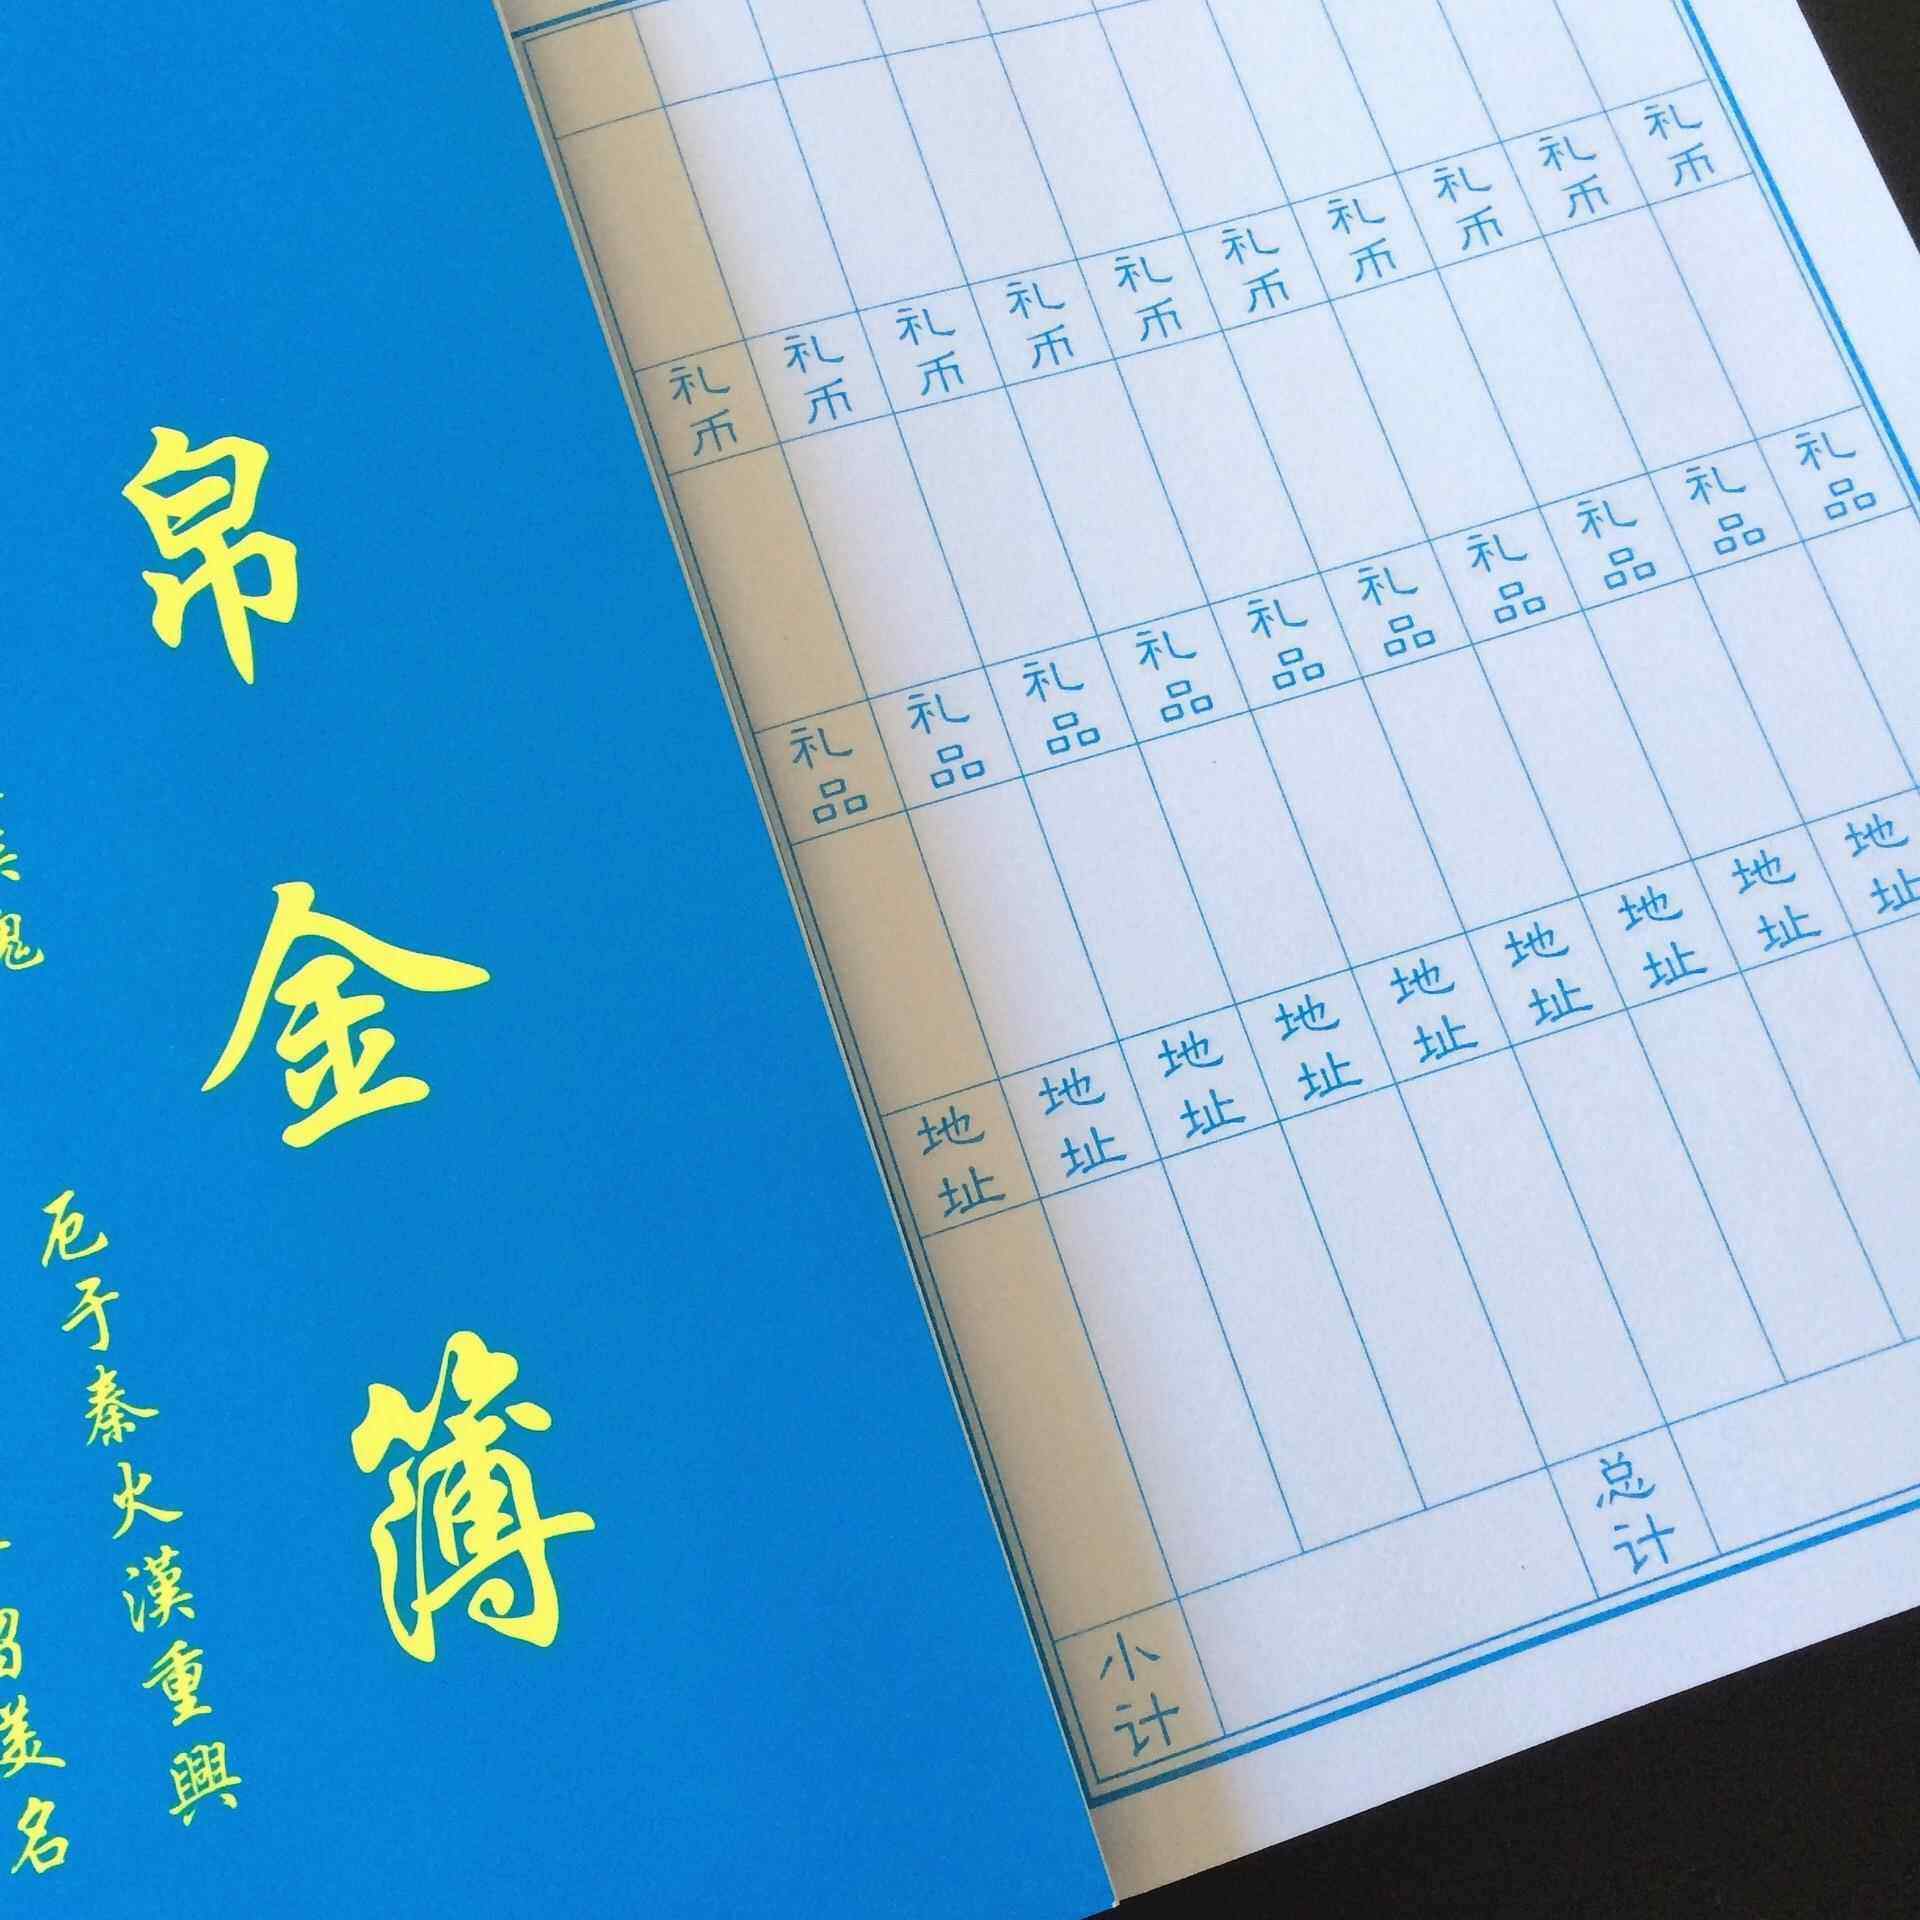 帛金簿
厄于秦火漢重興
美名
礼币 礼币 礼币 礼币 礼币 礼币 礼币 礼币 礼币 礼币
礼品 礼品 礼品 礼品 礼品 礼品 礼品 礼品 礼品 礼品
地址 地址 地址 地址 地址 地址 地址 地址 地址
小计 总计